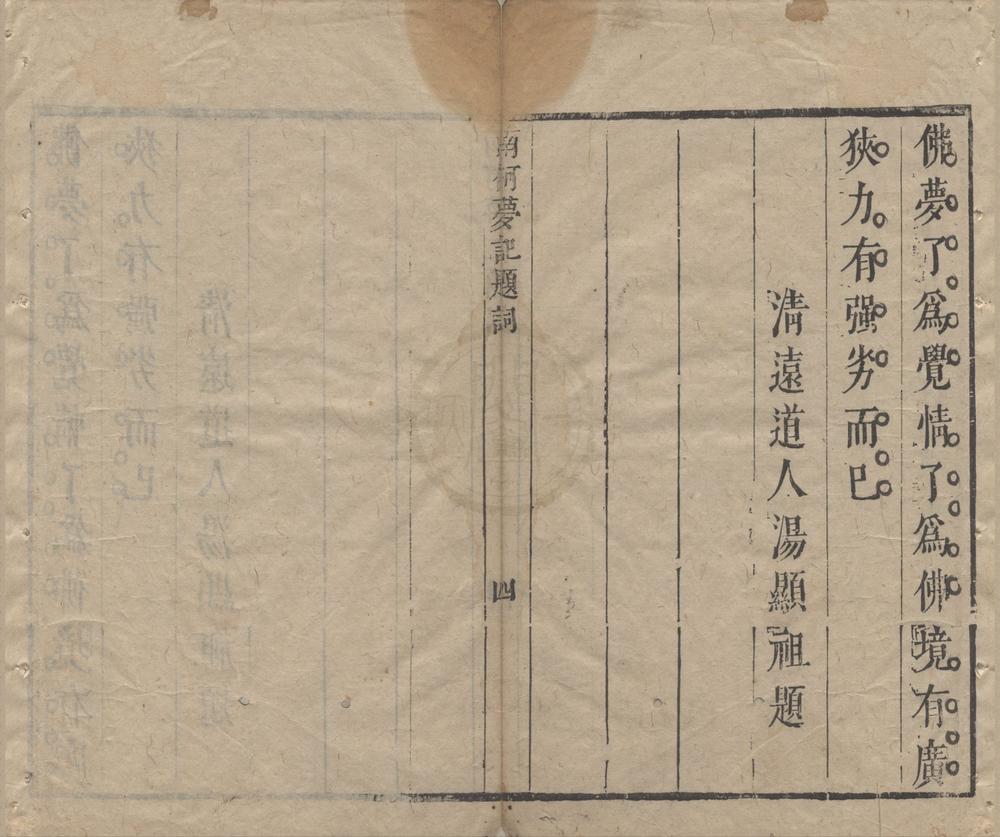 佛夢了爲覺情了爲佛境有廣
狹力有强劣而已
清遠道人湯顯祖題
南柯夢記題詞
四